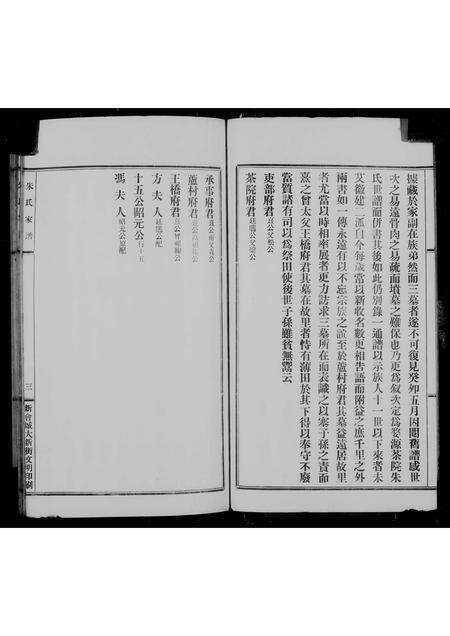 據藏於家副在族弟然而三墓者遂不可復見癸卯五月因閱舊譜感世
次之易遠骨肉之易疏而墳墓之難保也乃更為敘次定為婺源茶院朱
氏世譜而併書其後如此仍別錄一通譜以示族人十一世以下來者未
艾徽建二派自今每歲當以新收名數更相告語而附益之庶千里之外
兩書如一傳永遠有以不忘宗族之誼至於蘆村府君其墓益遠居故里
者尤當以時相率展省更力訪求三墓所在而表識之以塞子孫之責而
熹之曾大父王橋府君其墓在故里者恃有薄田於其下得以奉守不廢
當質諸有司以為祭田使後世子孫雖貧無鬻云
吏部府君熹公父松公
茶院府君
承事府君
蘆村府君
王橋府君
方夫人
十五公昭元公行十五
馮夫人昭元公原配
朱氏家譜
三
新會城大新街文明印刷